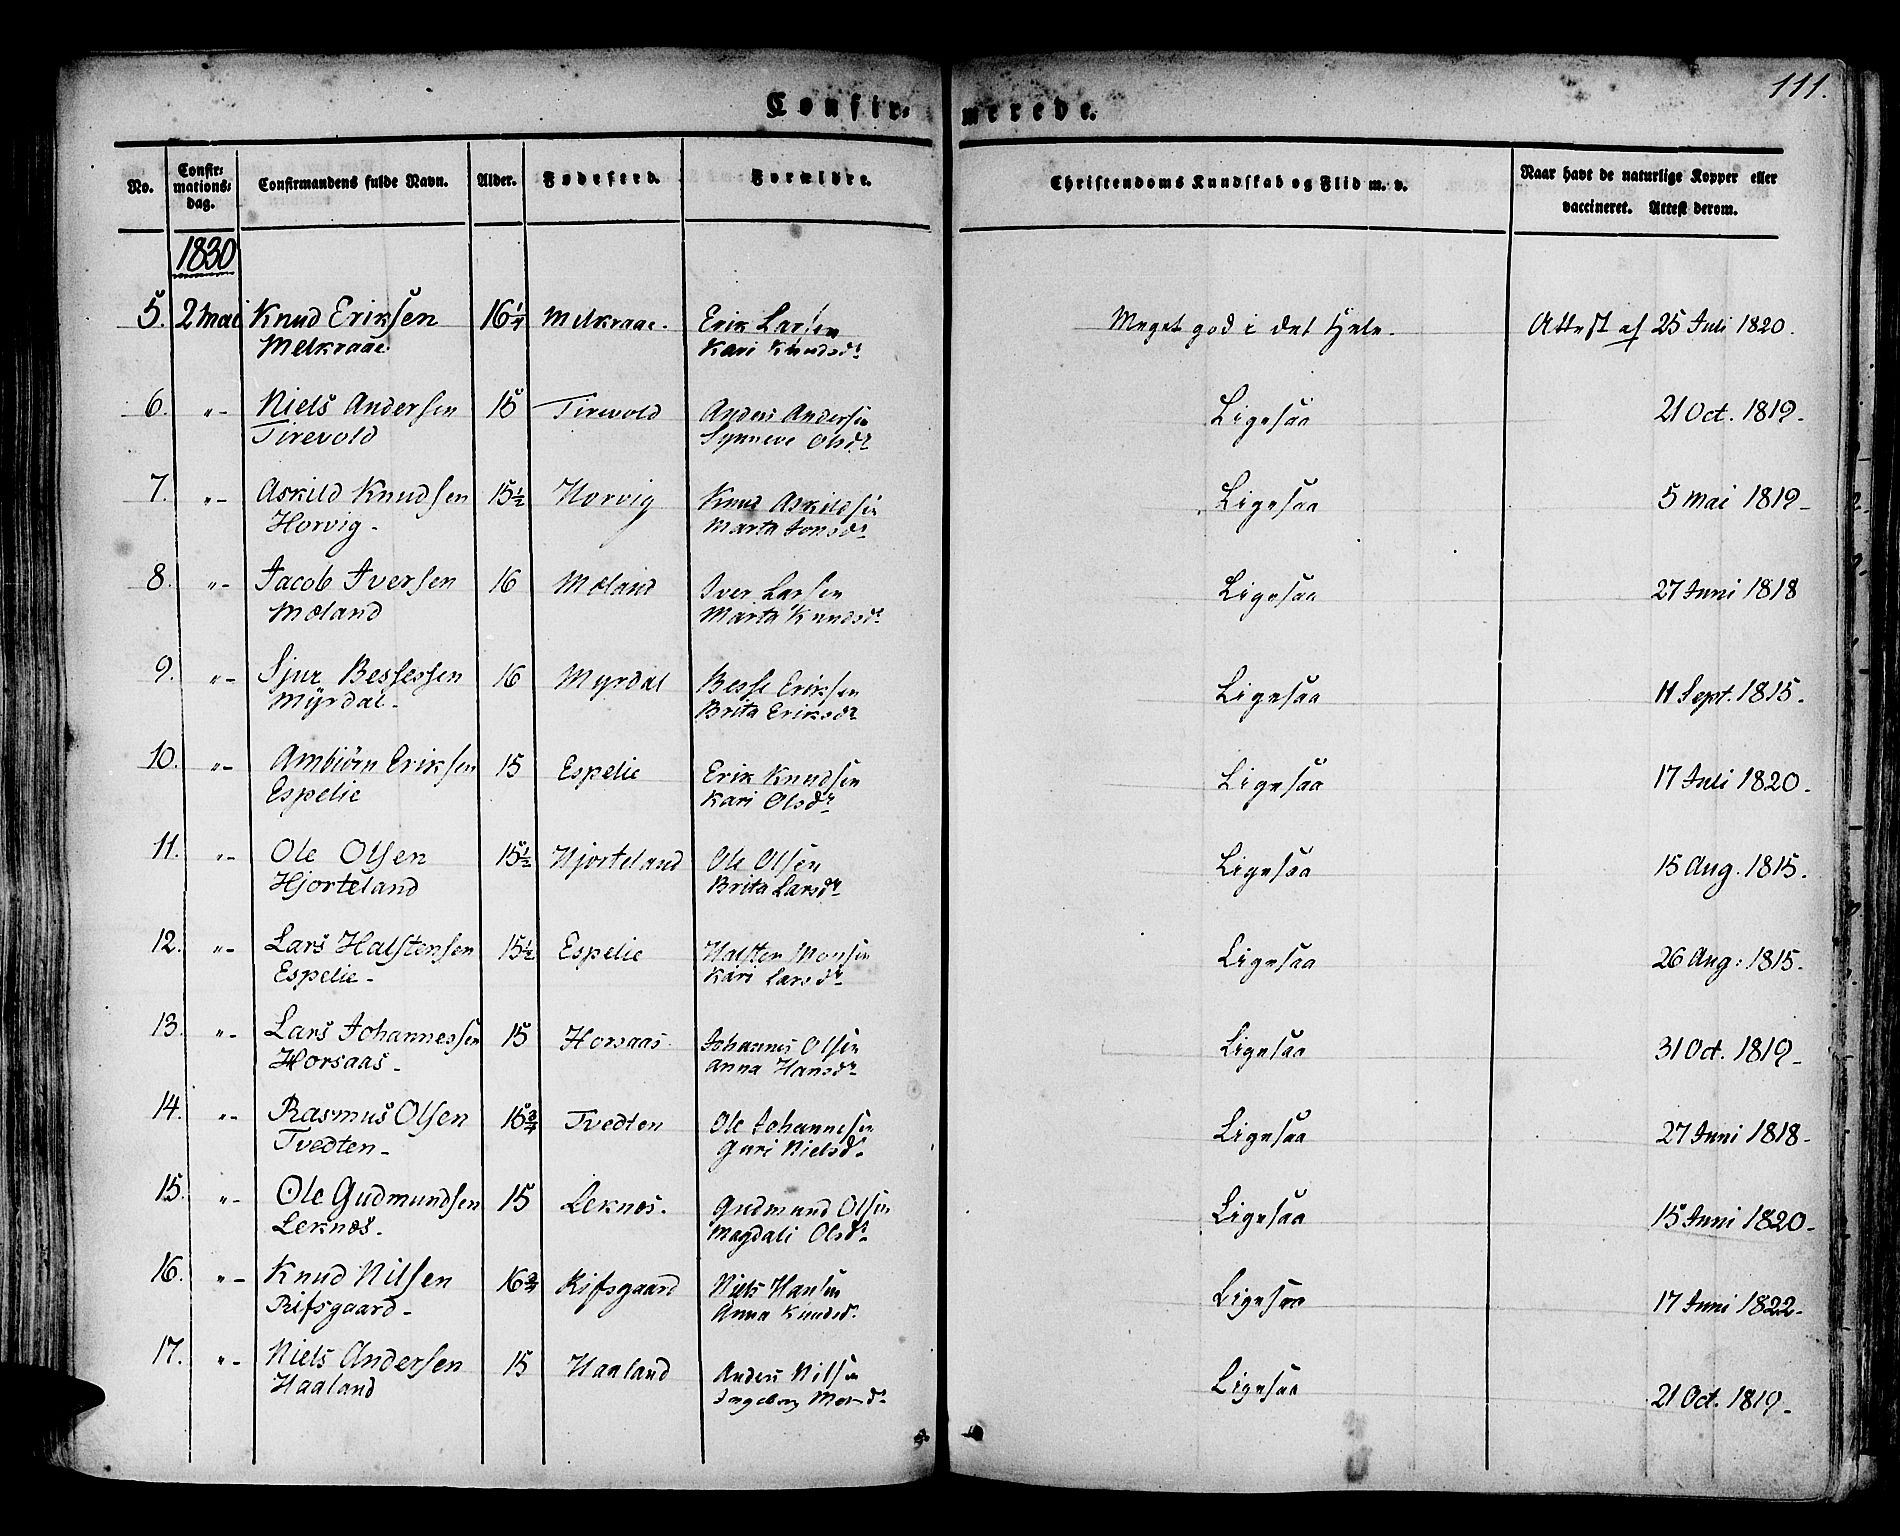 111.
Confir- merede.
No. Confir-mations-dag. Confirmandens fulde Navn. Alder. Fødested. Forældre. Christendoms Kundskab og Flid m. v. Naar havt de naturlige Kopper eller vaccineret. Attest derom.
1830
5. 2 Mai Knud Eriksen 16¼ Melkraae. Erik Larsen Meget god i det Hele. Attest af 25 Juli 1820.
Melkraae. Kari Knudsdr
6. "- Niels Andersen 15 Tirevold Anders Andersen Ligesaa 21 Oct. 1819.
Tirevold Synneve Olsdr
7. "- Askild Knudsen 15½ Horvig Knud Askildsen Ligesaa 5 Mai 1819-
Horvig- Marta Jonsdr
8. "- Jacob Iversen 16 Mæland Iver Larsen Ligesaa 27 Juni 1818
Mæland Marta Knudsdr
9. "- Sjur Bessessen 16 Myrdal Besse Eriksen Ligesaa 11 Sept. 1815.
Myrdal- Brita Eriksdr
10. "- Ambiørn Eriksen 15 Espelie Erik Knudsen Ligesaa 17 Juli 1820-
Espelie Kari Olsdr
11. "- Ole Olsen 15½ Hjorteland Ole Olsen Ligesaa 15 Aug. 1815.
Hjorteland Brita Larsdr
12. "- Lars Halstensen 15½ Espelie Halsten Monsen Ligesaa 26 Aug: 1815.
Espelie- Kari Larsdr
13. "- Lars Johannessen 15 Horsaas Johannes Olsen Ligesaa 31 Oct. 1819-
Horsaas- Anna Hansdr
14. "- Rasmus Olsen 15¾ Tvedten Ole Johannesen Ligesaa 27 Juni 1818-
Tvedten- Guri Nielsd.
15. "- Ole Gudmundsen 15 Leknæs. Gudmund Olsen Ligesaa 15 Juni 1820-
Leknæs- Magdali Olsdr
16. "- Knud Nilsen 16¾ Rifsgaard Niels Hansen Ligesaa 17 Juni 1822-
Rifsgaard- Anna Knudsd.
17. "- Niels Andersen 15 Haaland Anders Nilsen Ligesaa 21 Oct. 1819-
Haaland Ingeborg Monsdr